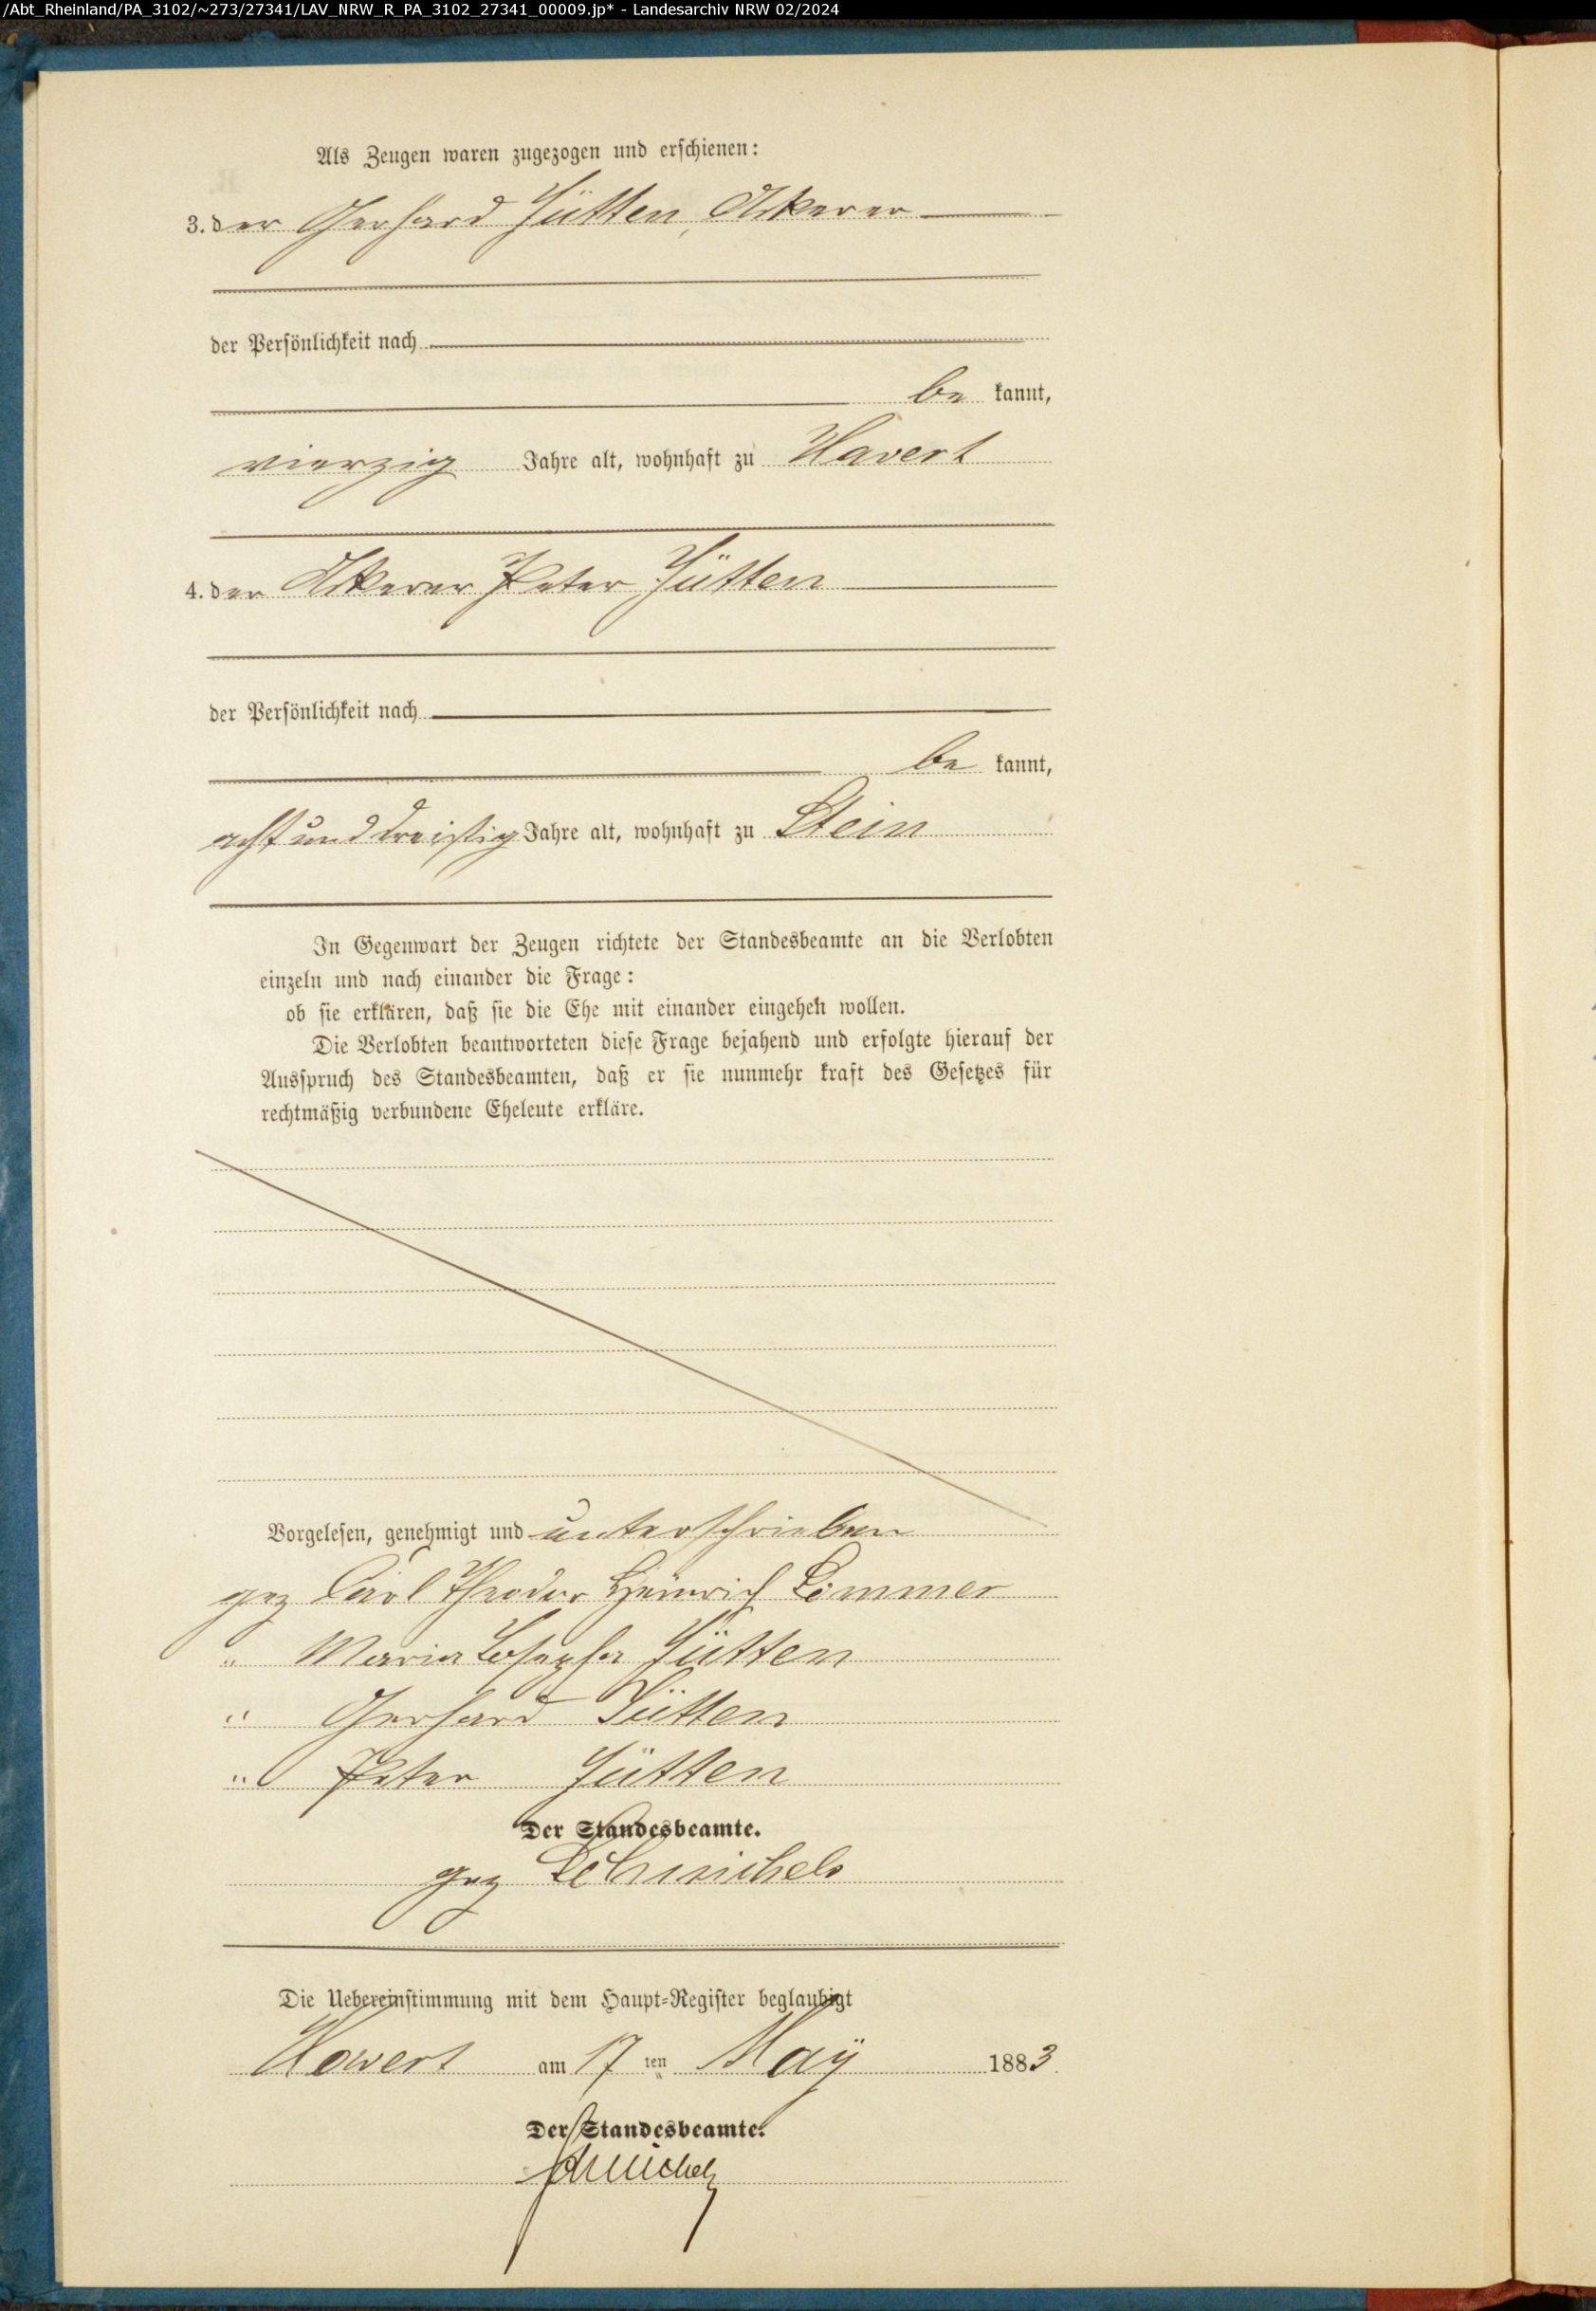 /Abt_Rheinland/PA_3102/~273/27341/LAV_NRW_R_PA_3102_27341_00009.jp* - Landesarchiv NRW 02/2024
Als Zeugen waren zugezogen und erschienen:
3. der Gerhard Jütten, Ackerer
der Persönlichkeit nach
be kannt,
vierzig Jahre alt, wohnhaft zu Havert
4. der Ackerer Peter Jütten
der Persönlichkeit nach
be kannt,
acht und dreißig Jahre alt, wohnhaft zu Stein
In Gegenwart der Zeugen richtete der Standesbeamte an die Verlobten
einzeln und nach einander die Frage:
ob sie erklären, daß sie die Ehe mit einander eingehen wollen.
Die Verlobten beantworteten diese Frage bejahend und erfolgte hierauf der
Ausspruch des Standesbeamten, daß er sie nunmehr kraft des Gesetzes für
rechtmäßig verbundene Eheleute erkläre.
Vorgelesen, genehmigt und unterschrieben
gez Carl Theodor Heinrich
" Maria Josepha Jütten
" Gerhard Jütten
" Peter Jütten
Der Standesbeamte.
gez
Die Uebereinstimmung mit dem Haupt-Register beglaubigt
Havert am 17 ten May 1883.
Der Standesbeamte.